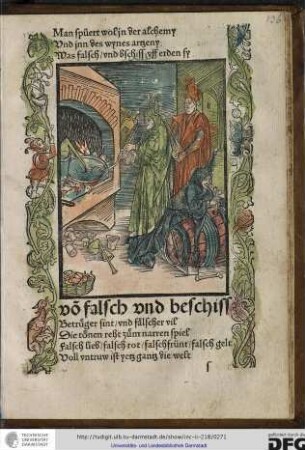 Man spüert wol jn der alchemy
Vnd jnn des wynes artzny
Was falsch / vnd bschiss vff erden sy
vō falsch vnd beschiss
Betrüger sint / vnd fälscher vil
Die tönen reht zům narren spiel
Falsch lieb / falsch rot / falsch fründt / falsch gelt
Voll vntruw ist yetz gantz die welt
http://tudigit.ulb.tu-darmstadt.de/show/inc-ii-218/0271
Universitäts- und Landesbibliothek Darmstadt
DFG